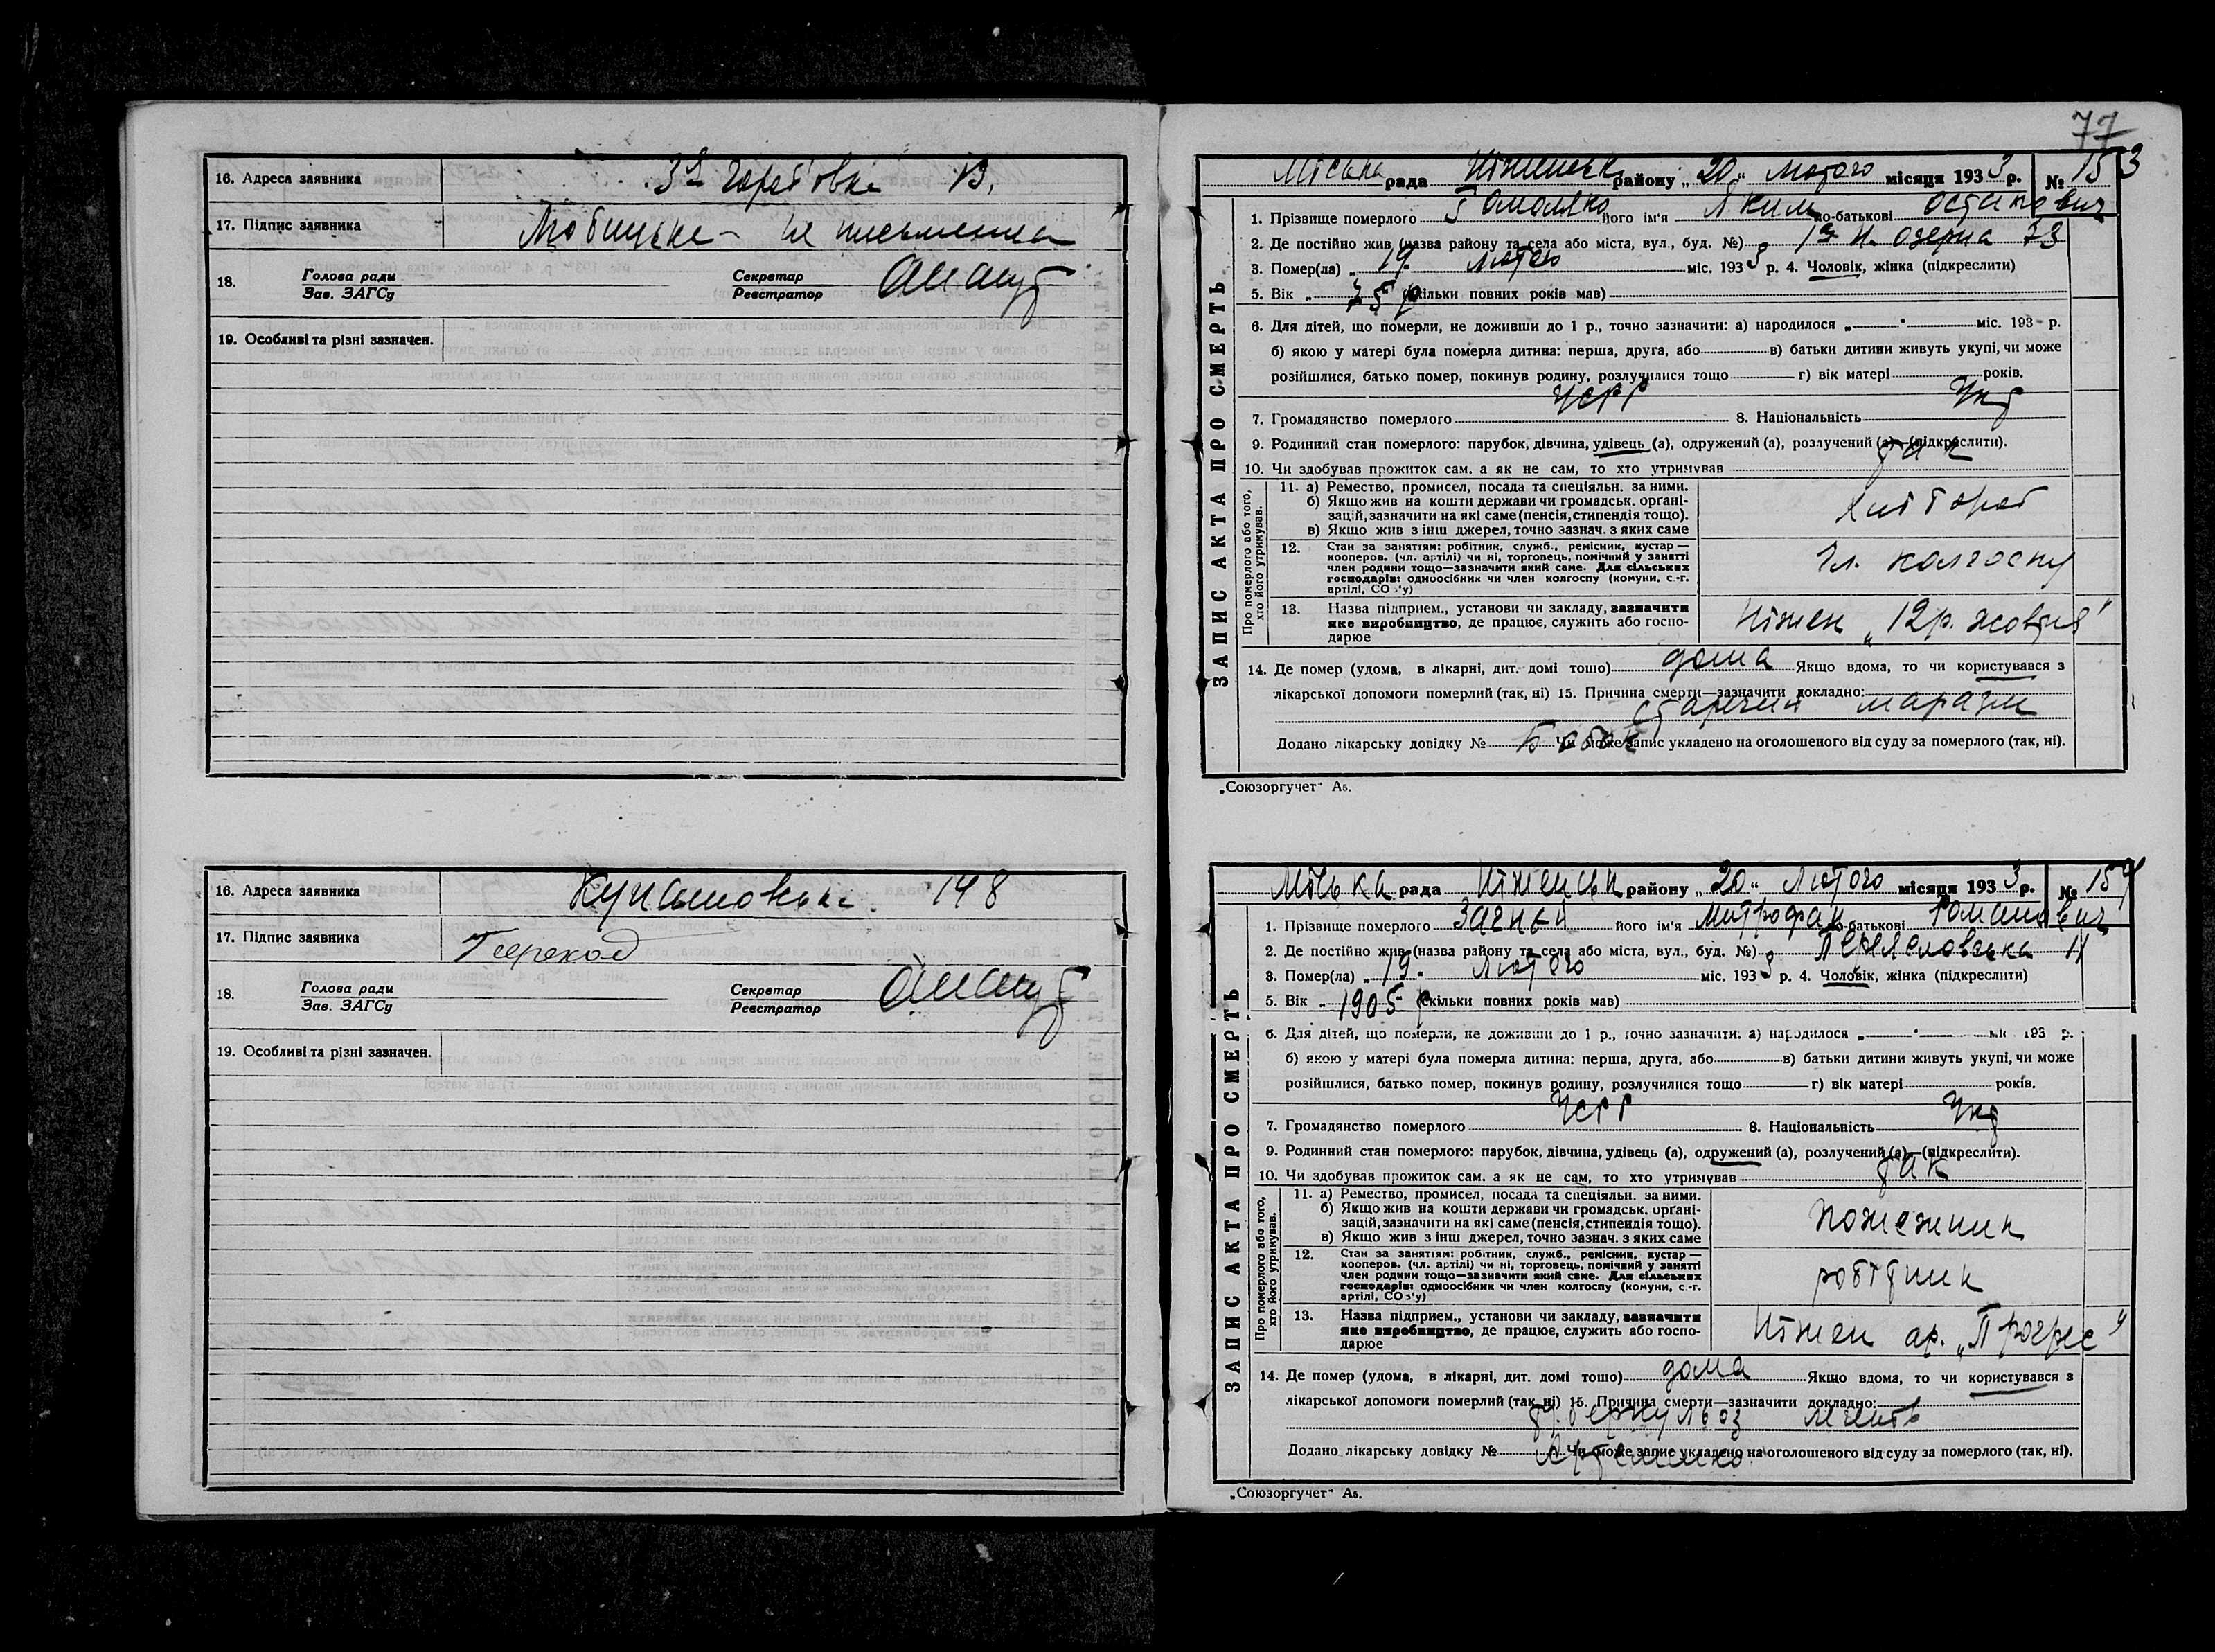 16. Адреса заявника 13.
17. Підпис заявника не письменна
18. Голова ради Зав. ЗАГСу Секретар Реєстратор
19. Особливі та різні зазначен.
16. Адреса заявника 148
17. Підпис заявника
18. Голова ради Зав. ЗАГСу Секретар Реєстратор
19. Особливі та різні зазначен.
77
ЗАПИС АКТА ПРО СМЕРТЬ
Міська рада Ніженськ району „20“ Лютого місяця 1933 р. № 153
1. Прізвище померлого його ім'я Яким по-батькові Остапович
2. Де постійно жив (назва району та села або міста, вул., буд. №) Озерна 73
3. Помер(ла) „19. лютого міс. 1933 р. 4. Чоловік, жінка (підкреслити)
5. Вік „ 75 р (скільки повних років мав)
6. Для дітей, що померли, не доживши до 1 р., точно зазначити: а) народилося „ “ міс. 193 р.
б) якою у матері була померла дитина: перша, друга, або в) батьки дитини живуть укупі, чи може
розійшлися, батько помер, покинув родину, розлучилися тощо г) вік матері років.
7. Громадянство померлого УСРР 8. Національність Укр
9. Родинний стан померлого: парубок, дівчина, удівець (а), одружений (а), розлучений (а)—(підкреслити).
10. Чи здобував прожиток сам, а як не сам, то хто утримував так
Про померлого або того, хто його утримував.
11. а) Ремество, промисел, посада та спеціяльн. за ними.
б) Якщо жив на кошти держави чи громадськ. орґані-
зацій, зазначити на які саме (пенсія, стипендія тощо).
в) Якщо жив з інш джерел, точно зазнач. з яких саме
хлібороб
12. Стан за заняттям: робітник, служб., ремісник, кустар —
кооперов. (чл. артілі) чи ні, торговець, помічний у занятті
член родини тощо—зазначити який саме. Для сільських
господарів: одноосібник чи член колгоспу (комуни, с.-г.
артілі, СОЗ'у)
Чл. колгоспу
13. Назва підприєм., установи чи закладу, зазначити
яке виробництво, де працює, служить або госпо-
дарює
Ніжен „12 р. жовтня“
14. Де помер (удома, в лікарні, дит. домі тощо) дома Якщо вдома, то чи користувався з
лікарської допомоги померлий (так, ні) 15. Причина смерти—зазначити докладно:
Старечий маразм
Додано лікарську довідку № Чи може запис укладено на оголошеного від суду за померлого (так, ні).
„Союзоргучет“ А5.
ЗАПИС АКТА ПРО СМЕРТЬ
Міська рада Ніженськ району „20“ Лютого місяця 1933 р. № 154
1. Прізвище померлого його ім'я Митрофан по-батькові Романович
2. Де постійно жив (назва району та села або міста, вул., буд. №) Переяславська
3. Помер(ла) „19. Лютого міс. 1933 р. 4. Чоловік, жінка (підкреслити)
5. Вік „ 1905 р (скільки повних років мав)
6. Для дітей, що померли, не доживши до 1 р., точно зазначити: а) народилося „ “ міс 193 р.
б) якою у матері була померла дитина: перша, друга, або в) батьки дитини живуть укупі, чи може
розійшлися, батько помер, покинув родину, розлучилися тощо г) вік матері років.
7. Громадянство померлого УСРР 8. Національність Укр
9. Родинний стан померлого: парубок, дівчина, удівець (а), одружений (а), розлучений (а)—(підкреслити).
10. Чи здобував прожиток сам, а як не сам, то хто утримував так
Про померлого або того, хто його утримував.
11. а) Ремество, промисел, посада та спеціяльн. за ними.
б) Якщо жив на кошти держави чи громадськ. орґані-
зацій, зазначити на які саме (пенсія, стипендія тощо).
в) Якщо жив з інш джерел, точно зазнач. з яких саме
пожежник
12. Стан за заняттям: робітник, служб., ремісник, кустар —
кооперов. (чл. артілі) чи ні, торговець, помічний у занятті
член родини тощо—зазначити який саме. Для сільських
господарів: одноосібник чи член колгоспу (комуни, с.-г.
артілі, СОЗ'у)
робітник
13. Назва підприєм., установи чи закладу, зазначити
яке виробництво, де працює, служить або госпо-
дарює
Ніжен ар. „Прогрес“
14. Де помер (удома, в лікарні, дит. домі тощо) дома Якщо вдома, то чи користувався з
лікарської допомоги померлий (так, ні) 15. Причина смерти—зазначити докладно:
туберкульоз легенів
Додано лікарську довідку № Чи може запис укладено на оголошеного від суду за померлого (так, ні).
„Союзоргучет“ А5.